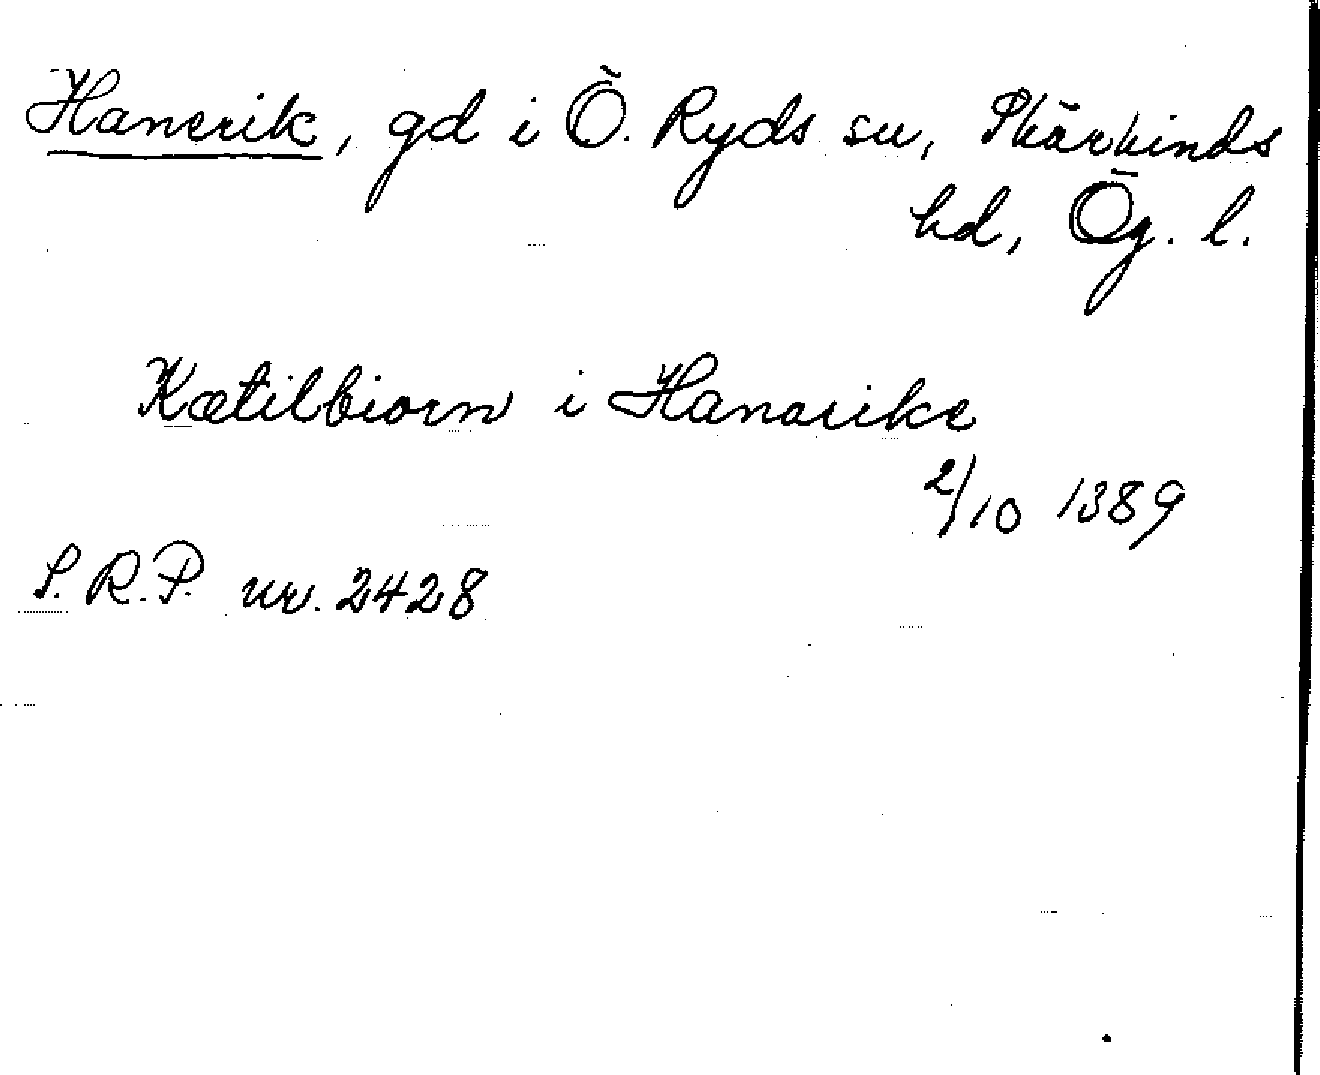 Hanerik, gd i Ö. Ryds sn, Skärkinds
hd, Ög. l.
Kætilbiorn i Hanarike
2/10 1389
S.R.P. nr. 2428